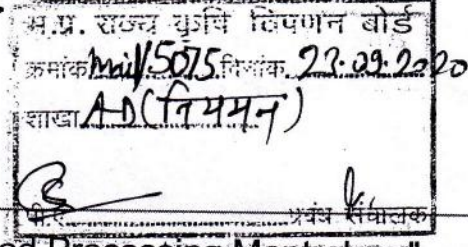 म.प्र. राज्य कृषि विपणन बोर्ड
क्रमांक mail/5075 दिनांक 23.09.2020
शाखा A-D (नियमन)
पी.ए. प्रबंध संचालक
Processing